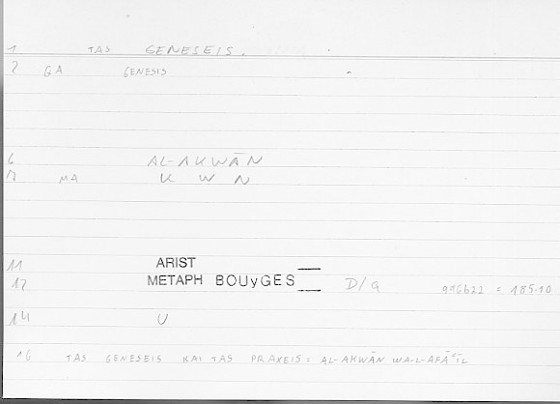 1 TAS GENESEIS.
2 GA GENESIS
6 AL-AKWĀN
7 MA K W N
11 ARIST
12 METAPH BOUyGES D/a 996b22 = 185.10
14 U
16 TAS GENESEIS KAI TAS PRAXEIS: AL-AKWĀN WA-L-AFĀʿĪL